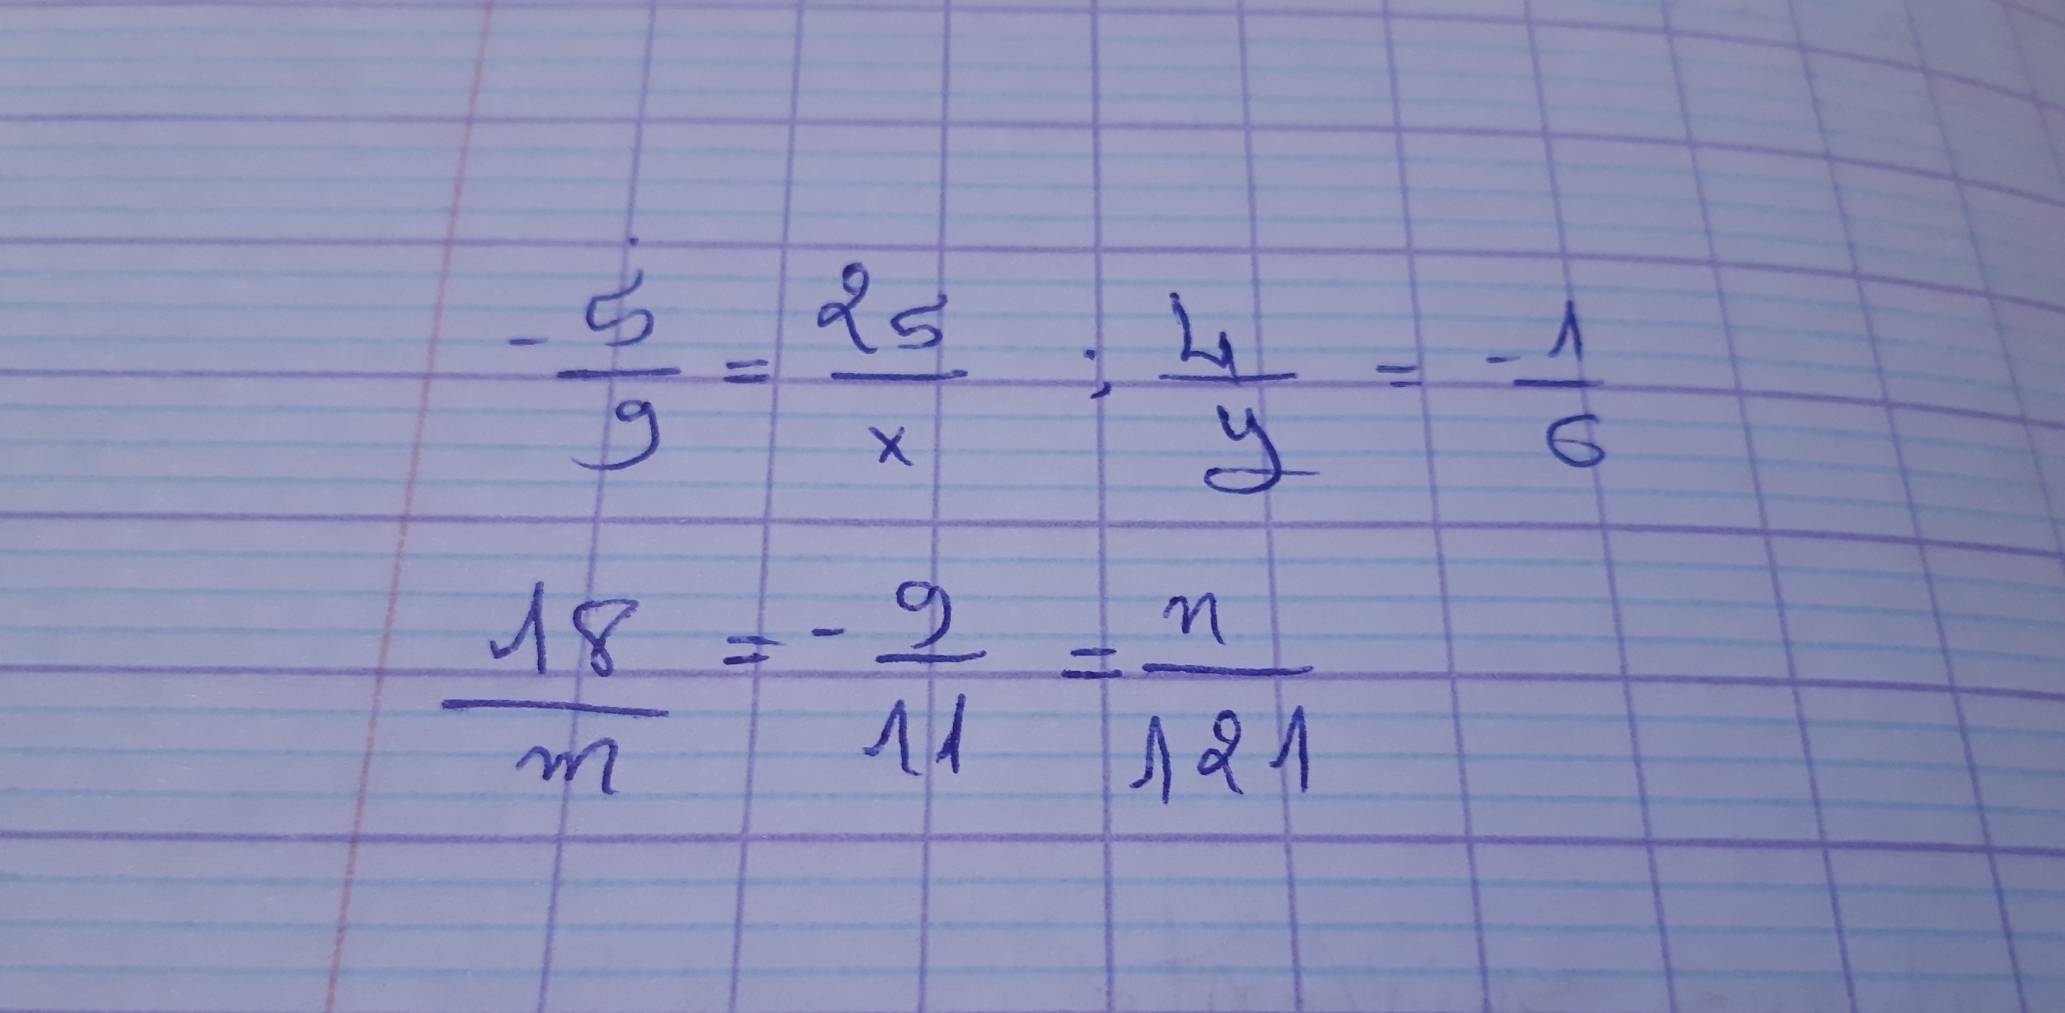 -5/9 = 25/x ; 4/y = -1/6
18/m = -9/11 = n/121